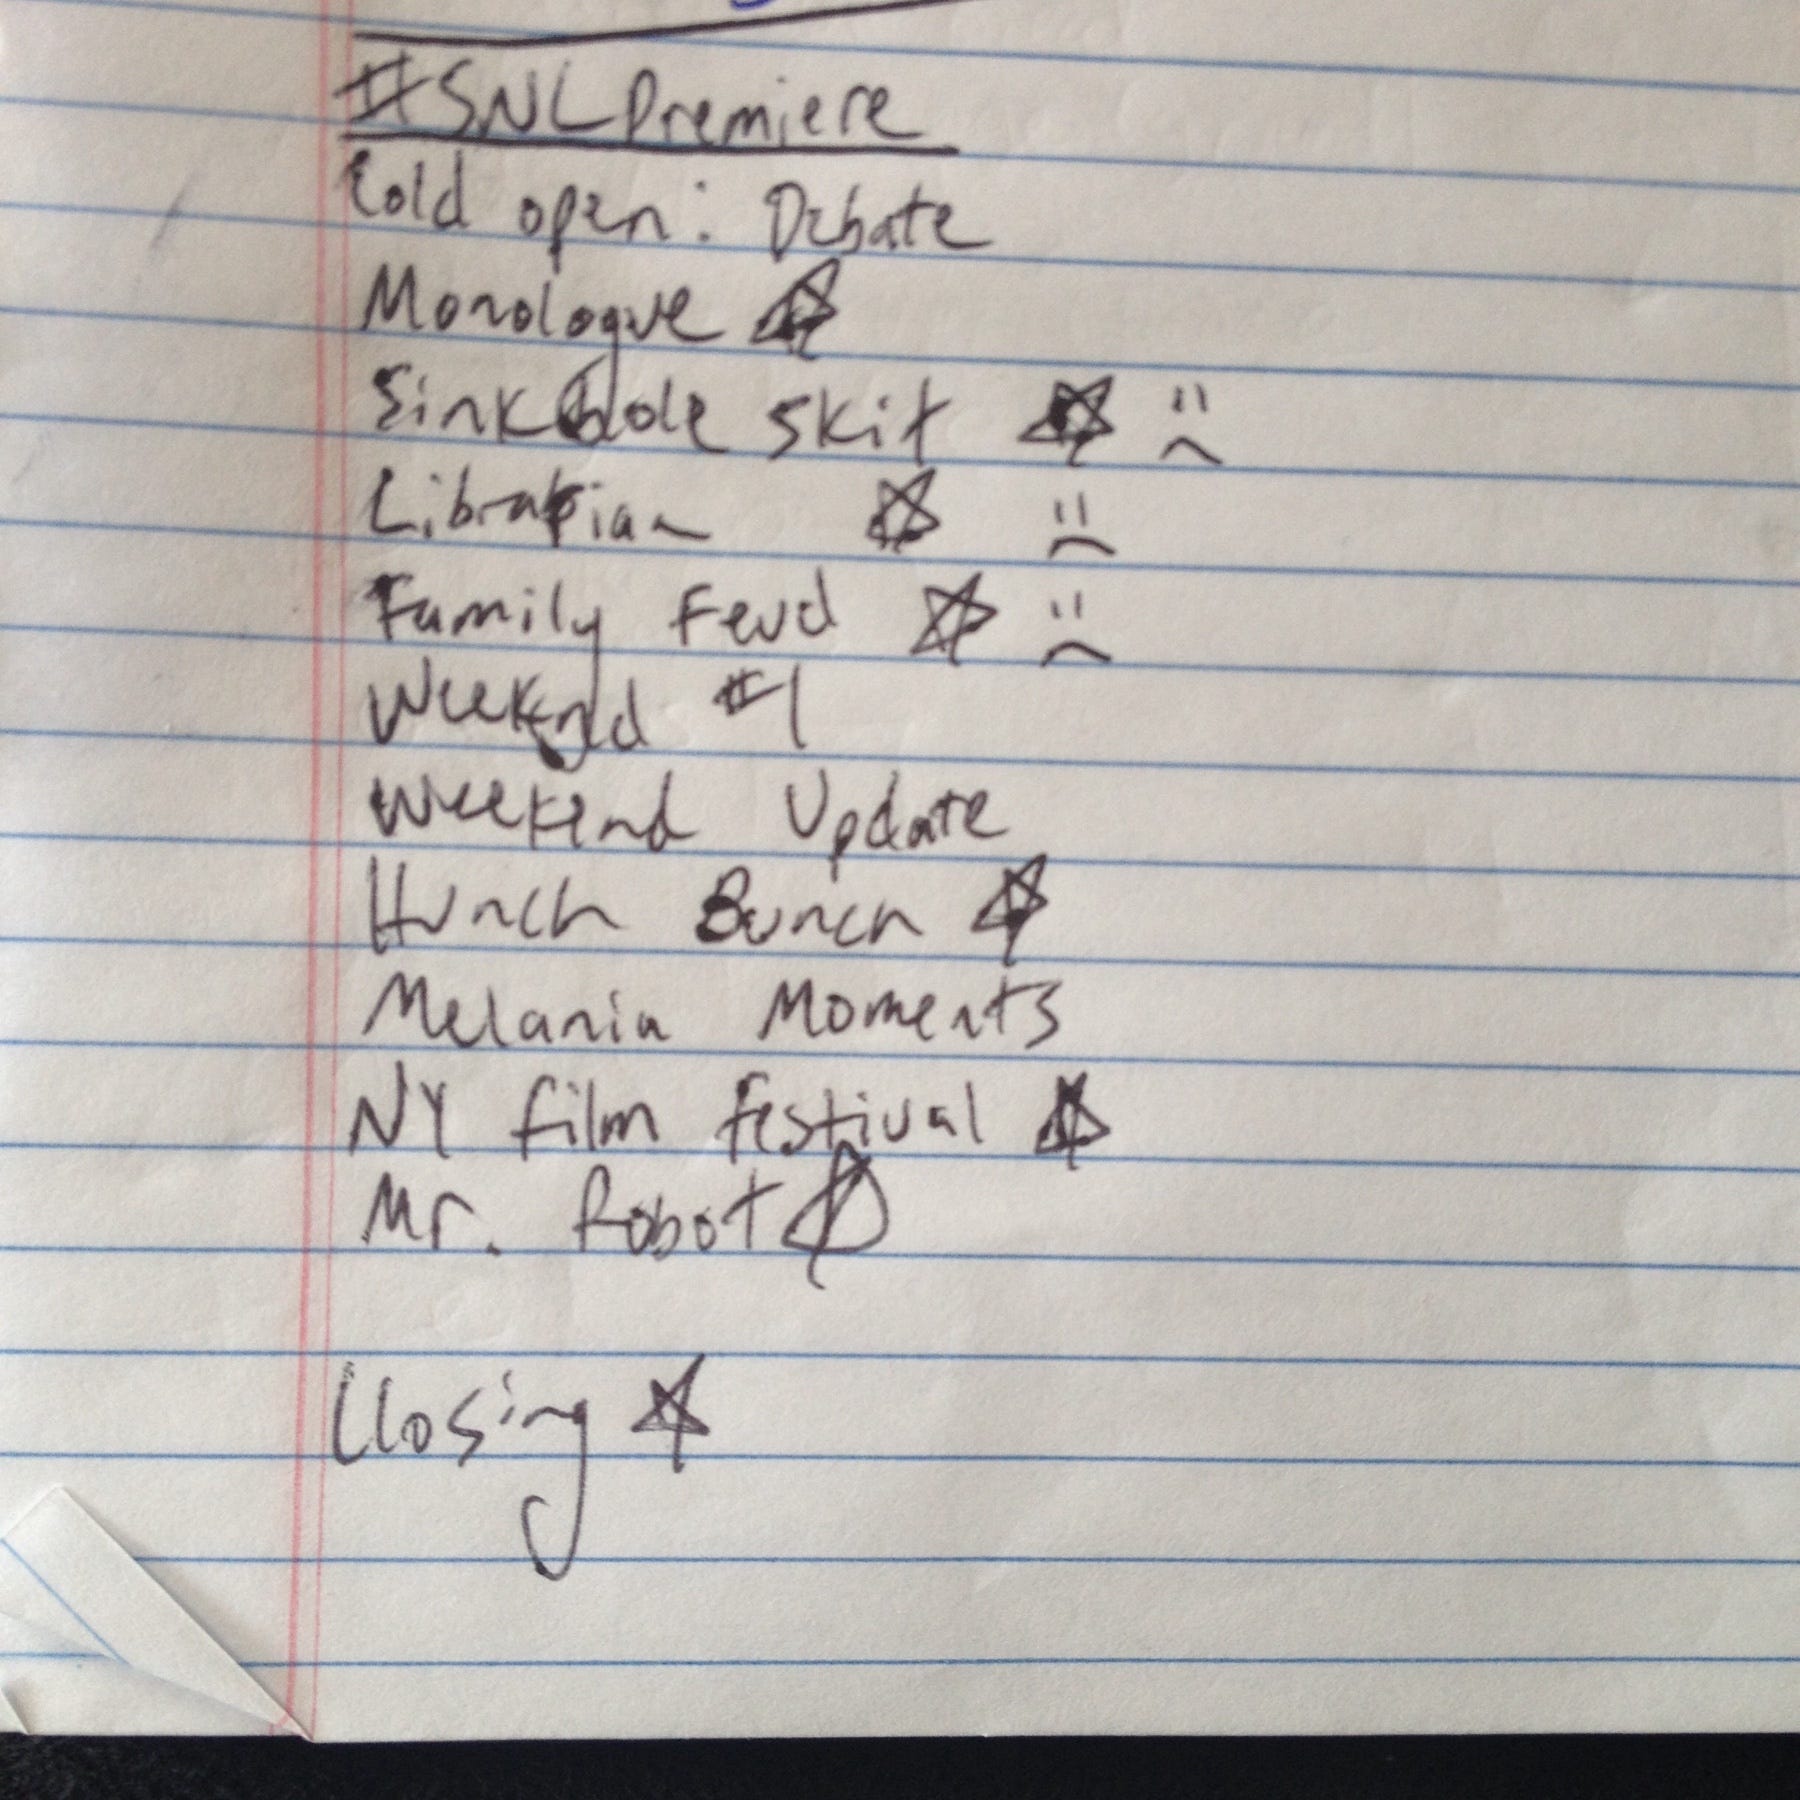 #SNLPremiere
Cold open: Debate
Monologue ☆
Sinkhole skit ☆ :(
Librarian ☆ :(
Family Feud ☆ :(
Weekend #1
Weekend Update
Hunch Bunch ☆
Melania Moments
NY film festival ☆
Mr. Robot ☆
Closing ☆